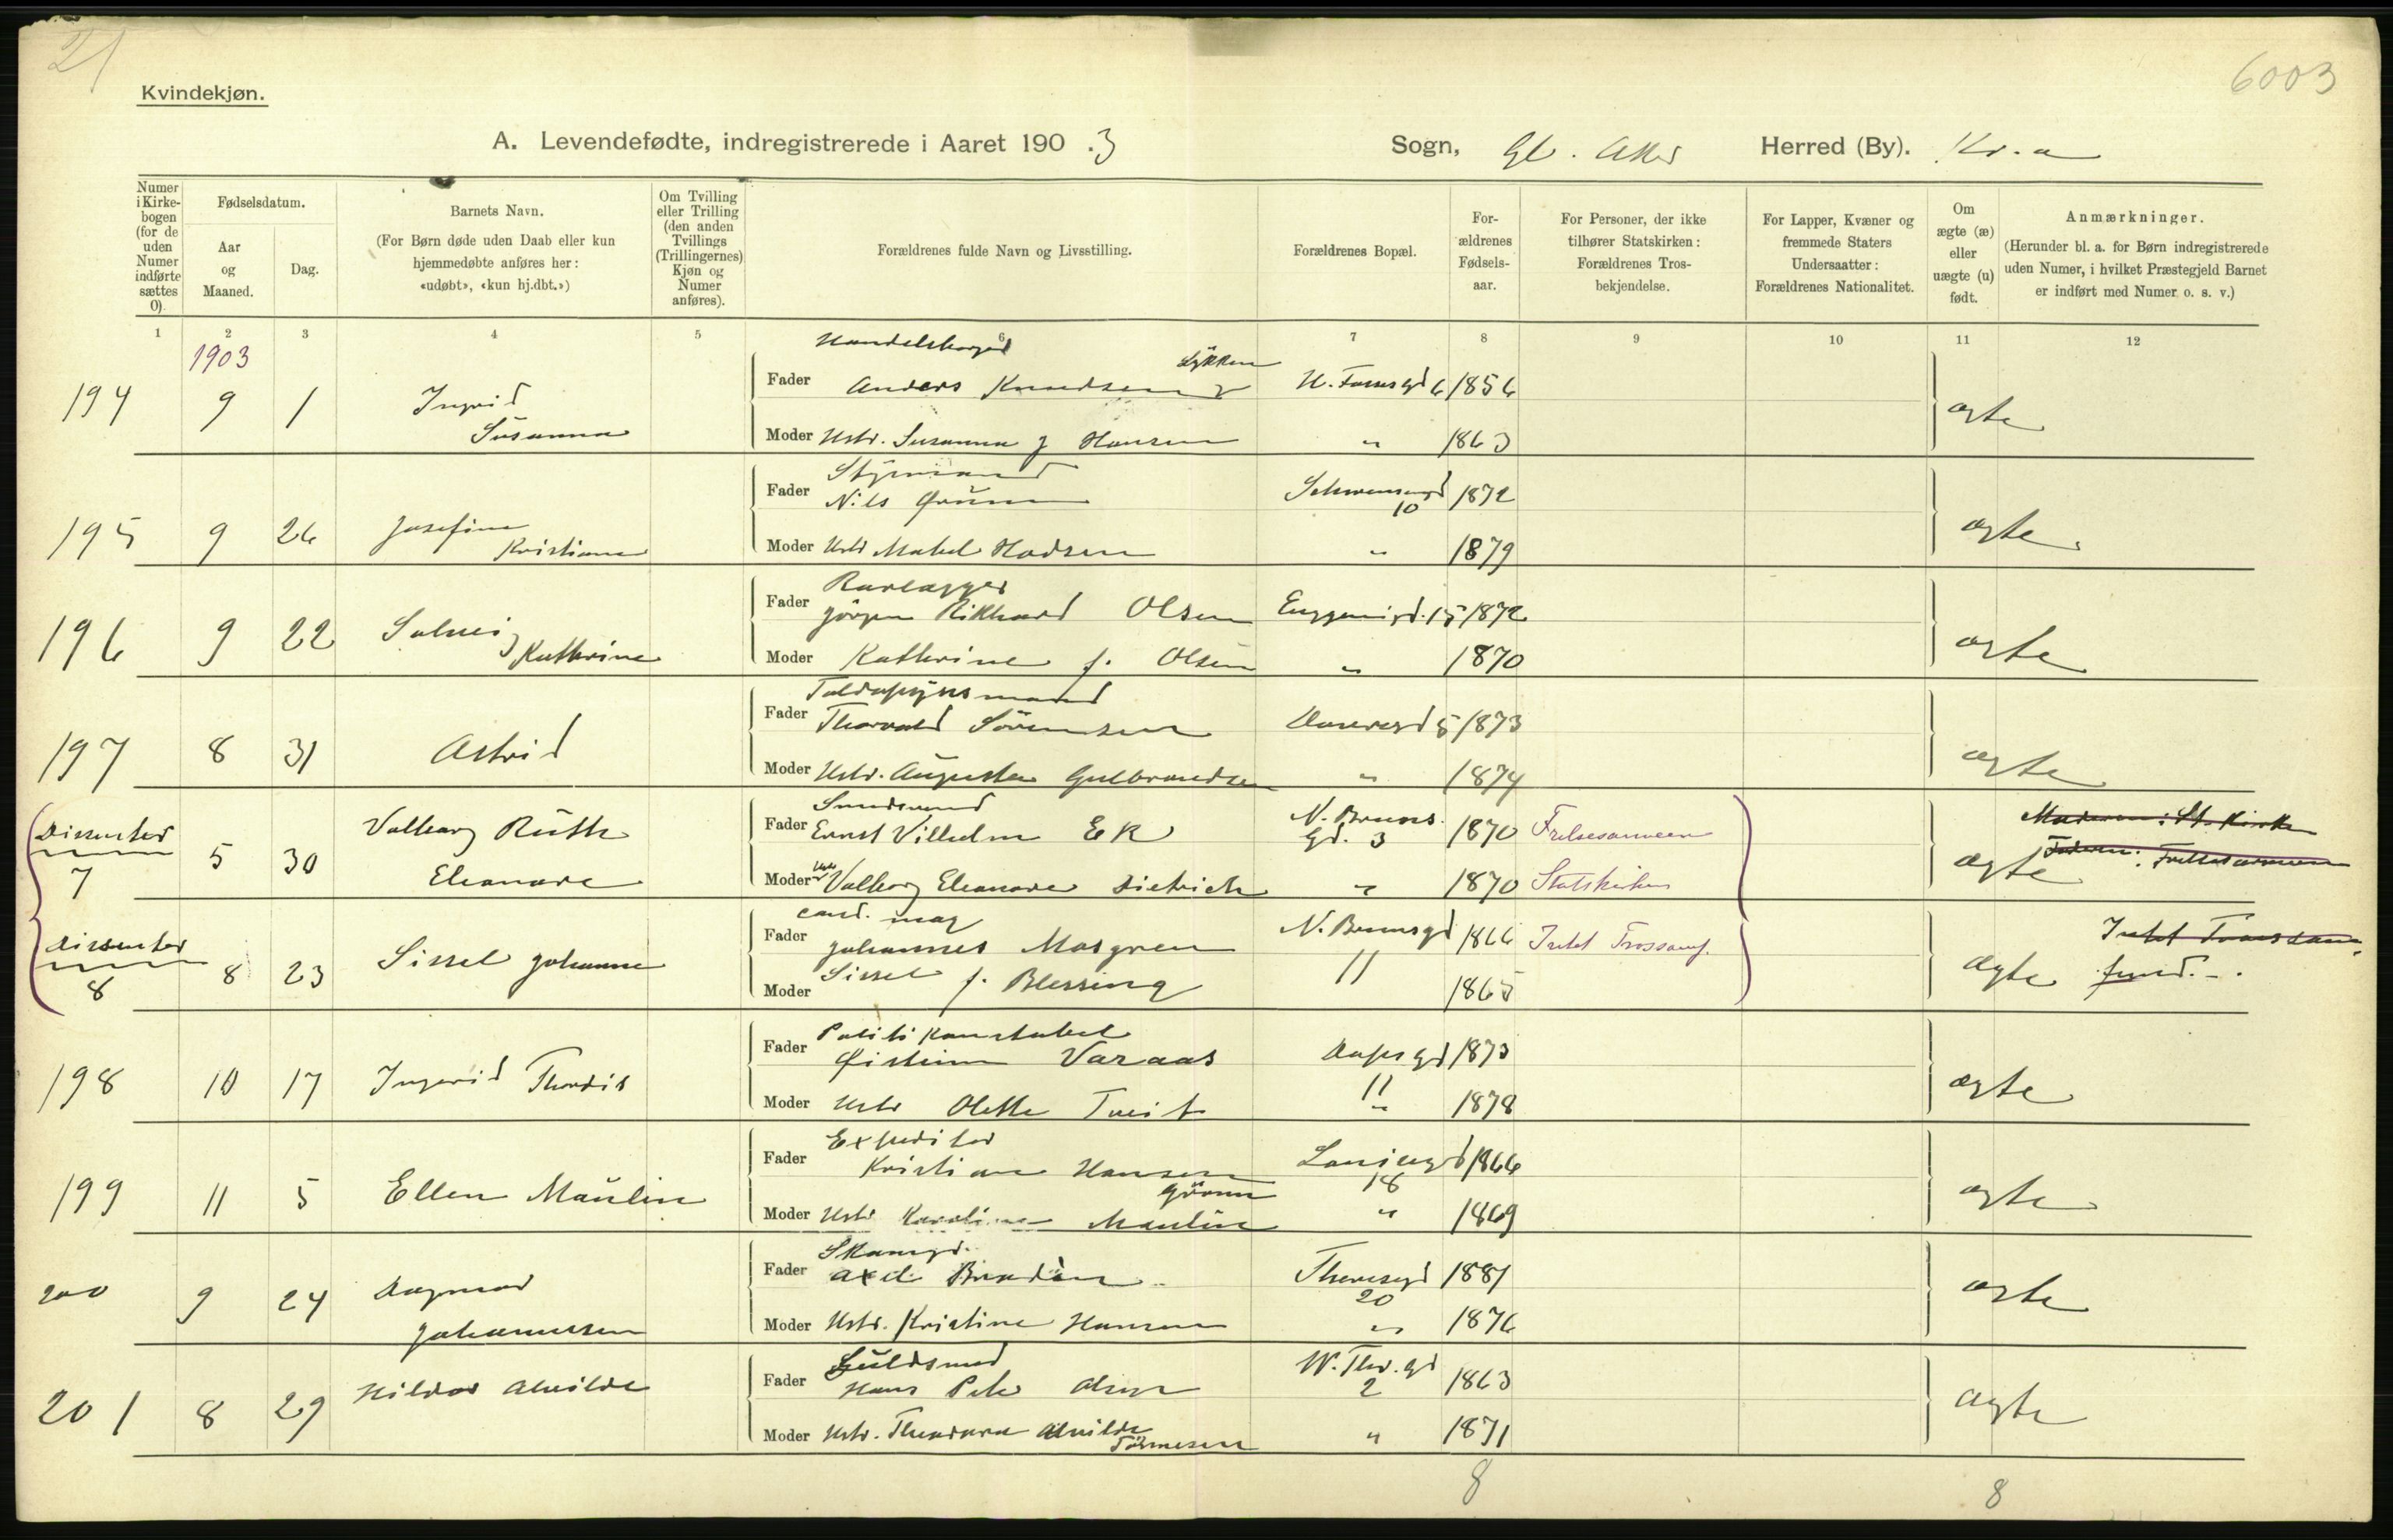 21
6003
Kvindekjøn.
A. Levendefødte, indregistrerede i Aaret 190 .3 Sogn, Gl. Aker Herred (By). Kr.a
Numer i Kirkebogen (for de uden Numer indførte sættes 0).
Fødselsdatum.
Aar og Maaned.
Dag.
Barnets Navn.
(For Børn døde uden Daab eller kun hjemmedøbte anføres her: «udøbt», «kun hj.dbt.»)
Om Tvilling eller Trilling (den anden Tvillings (Trillingernes) Kjøn og Numer anføres).
Forældrenes fulde Navn og Livsstilling.
Forældrenes Bopæl.
Forældrenes Fødselsaar.
For Personer, der ikke tilhører Statskirken: Forældrenes Trosbekjendelse.
For Lapper, Kvæner og fremmede Staters Undersaatter: Forældrenes Nationalitet.
Om ægte (æ) eller uægte (u) født.
Anmærkninger.
(Herunder bl. a. for Børn indregistrerede uden Numer, i hvilket Præstegjeld Barnet er indført med Numer o. s. v.)
1 2 3 4 5 6 7 8 9 10 11 12
1903
194 9 1 Ingrid Susanna
Fader Anders Knudsen Lykken 1856
Moder Hstr. Susanna f Hansen " 1863
ægte
195 9 26 Josefine Kristiane
Fader Styrmand
Nils 10 1872
Moder Hstr " 1879
ægte
196 9 22 Solveig Kathrine
Fader Jörgen Rikhard Olsen 15 1872
Moder Kathrine f. Olsen " 1870
ægte
197 8 31 Astrid
Fader Toldopsynsmand
Thorvald Sörensen 5 1873
Moder Hstr. Augusta Gulbrandsen " 1874
ægte
Dissenter 7 5 30 Valborg Ruth Eleonore
Fader Ernst Vilhelm Ek N. Bruns Gd. 3 1870 Frelsesarmeen
Moder Hstr Valborg Eleonore Dietrich " 1870 Statskirken
ægte Moderen: St. Kirken
Faderen: Frelsesarmeen
Dissenter 8 8 23 Sissel Johanne
Fader cand. mag
Johannes Mosgren N. Brunsgd 11 1866 Intet Trossamf.
Moder Sissel f. Blessing 1865
ægte Intet Trossamfund. -
198 10 17 Ingerid Thordis
Fader Politikonstabel
Öistein Varaas 11 1873
Moder Hstr Olette Tveit " 1878
ægte
199 11 5 Ellen Maulin
Fader Expeditor
Kristian Hansen 18 1866
Moder Hstr Karoline Maulin " 1869
ægte
200 9 24 Dagmar Johannessen
Fader Axel Theresegd 20 1881
Moder Hstr. Kristine Hansen " 1876
ægte
201 8 29 Hildur Alvilde
Fader Guldsmed
Hans Peter Olsen W. Thr. gd 2 1863
Moder Hstr. Theodora Alvilde " 1871
ægte
8 8